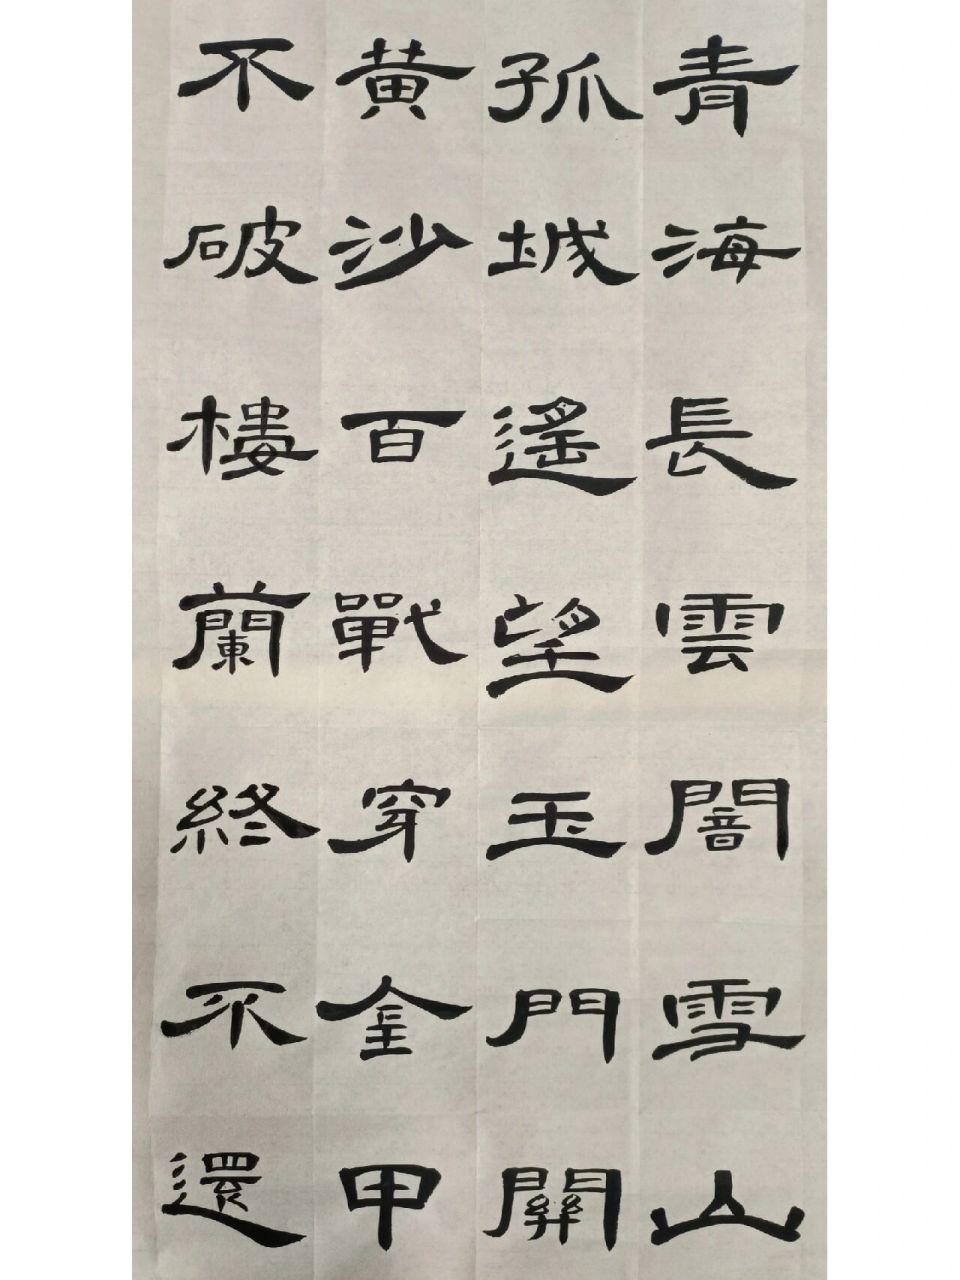 青海長雲闇雪山
孤城遙望玉門關
黄沙百戰穿金甲
不破樓蘭終不還